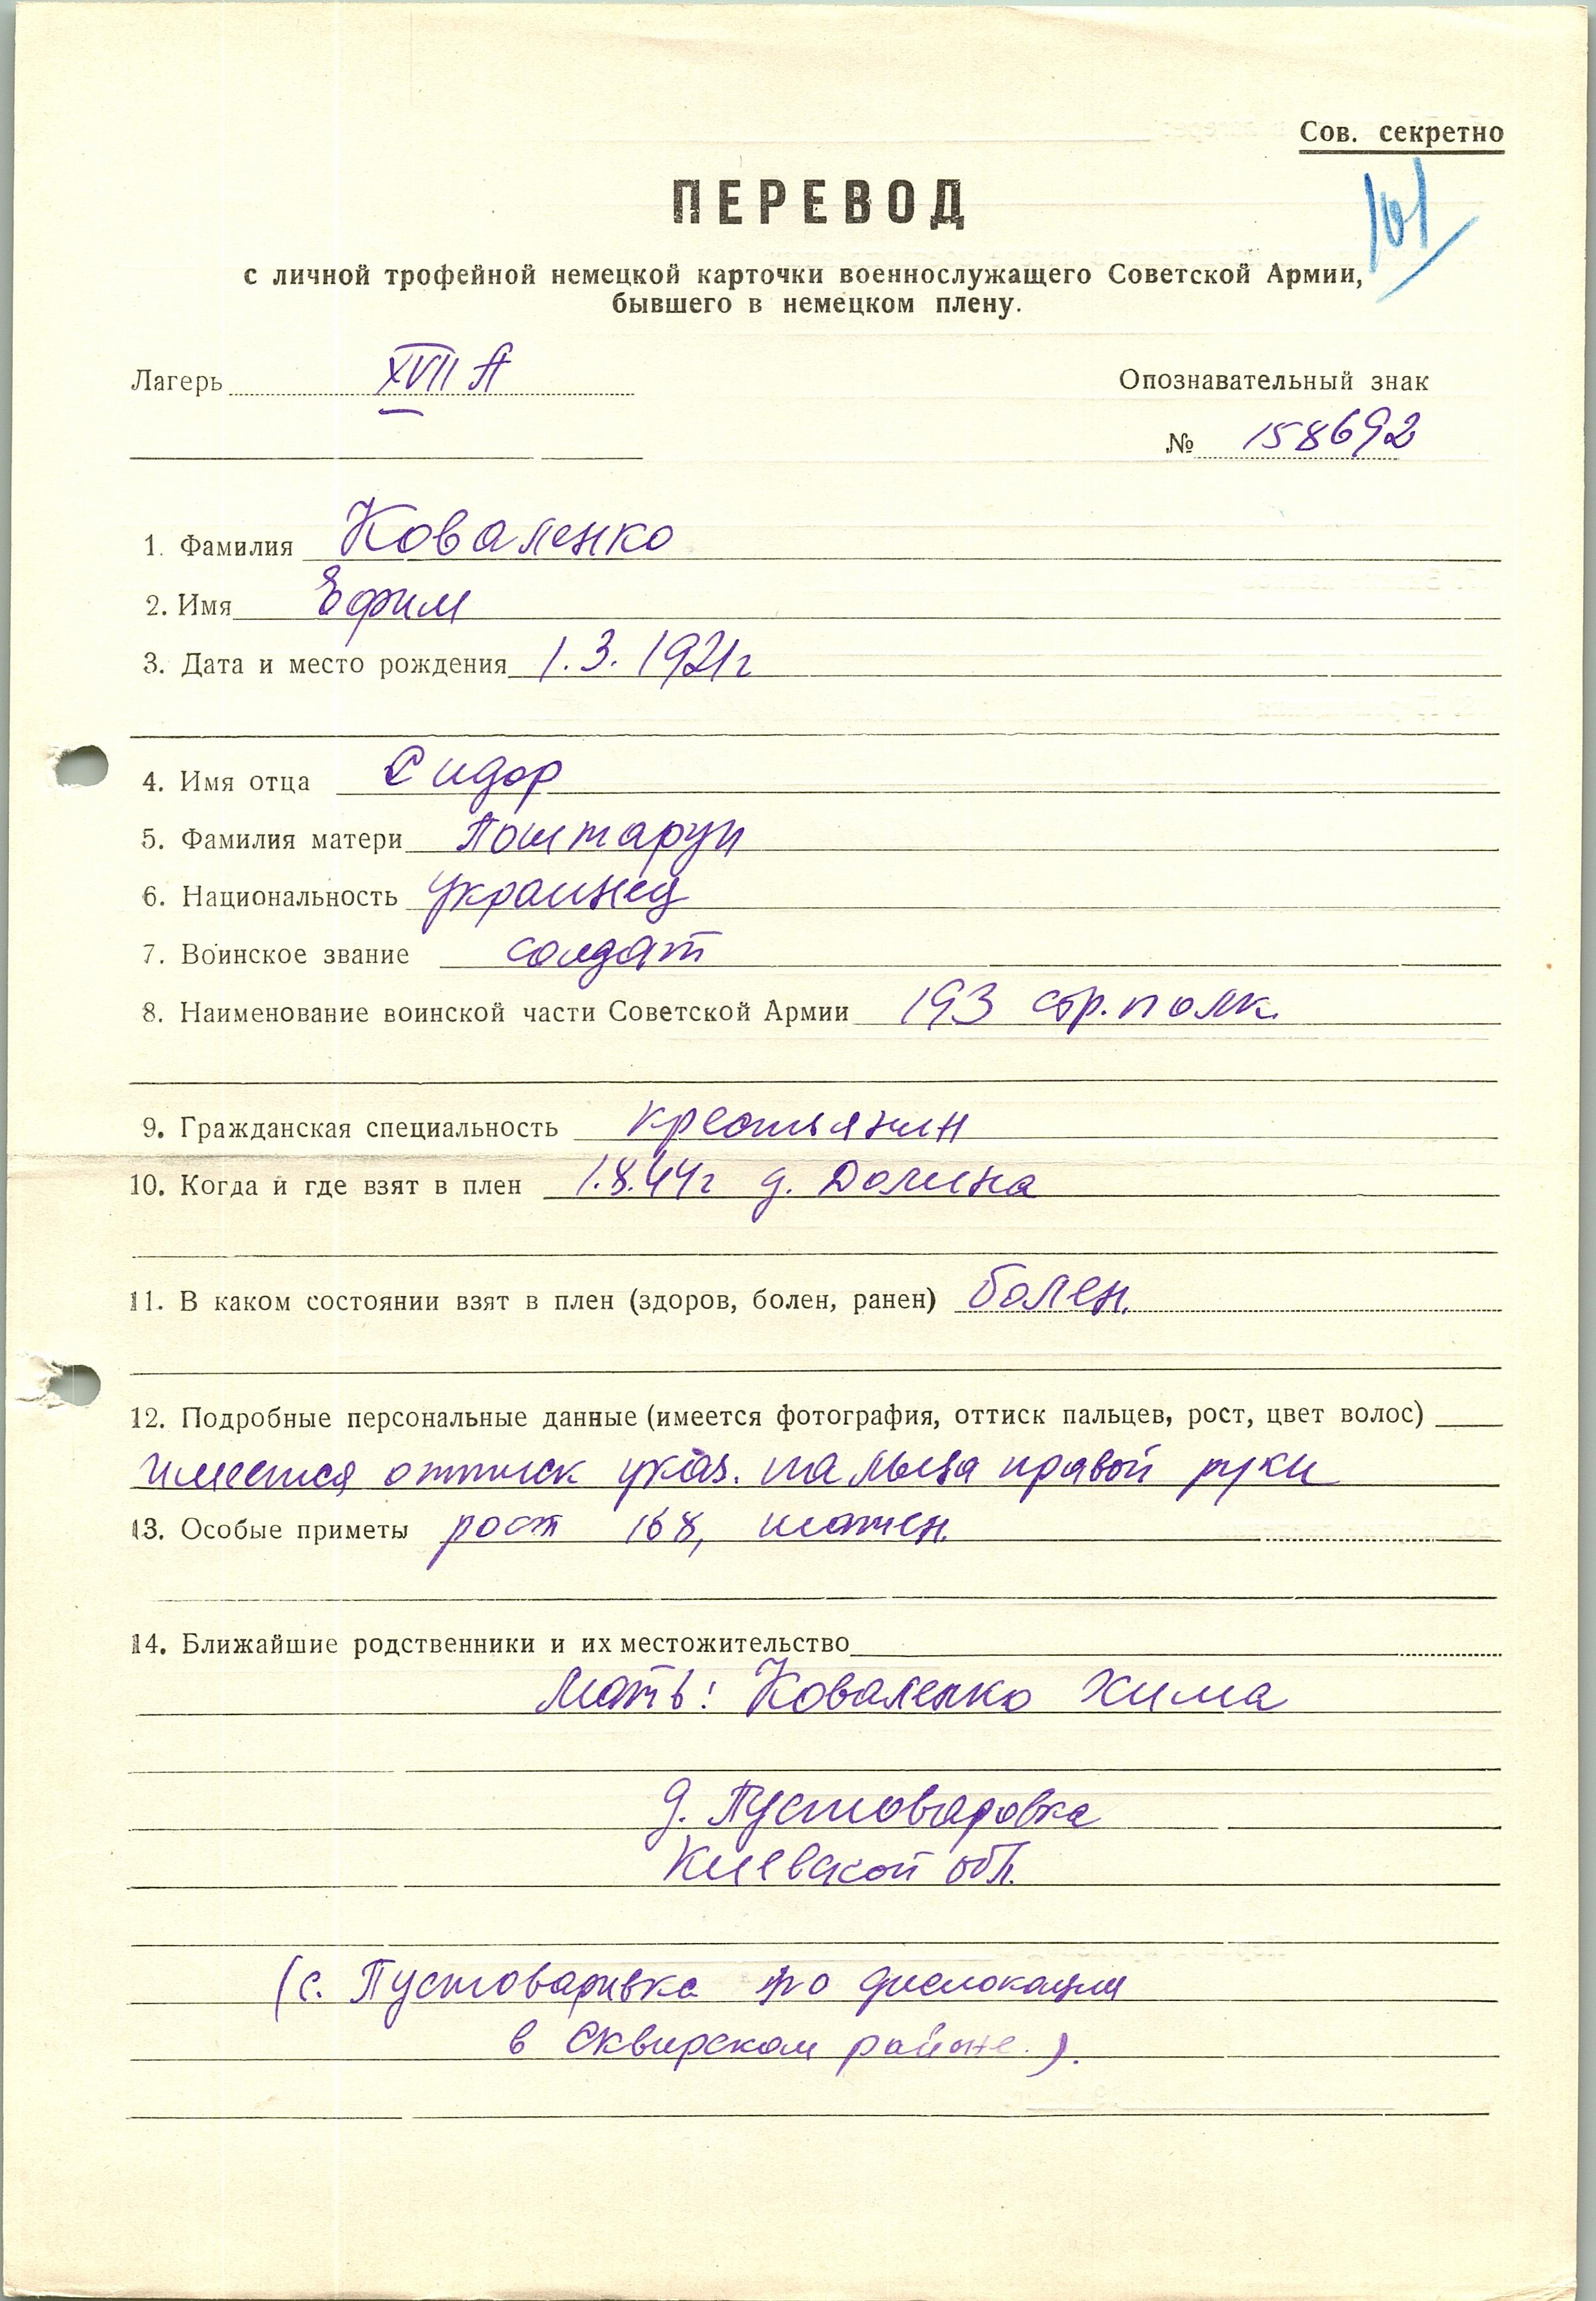 Сов. секретно
101
ПЕРЕВОД
с личной трофейной немецкой карточки военнослужащего Советской Армии,
бывшего в немецком плену.
Лагерь XVII А
Опознавательный знак
№ 158692
1. Фамилия Коваленко
2. Имя Ефим
3. Дата и место рождения 1.3.1921г
4. Имя отца Сидор
5. Фамилия матери Поштарук
6. Национальность украинец
7. Воинское звание солдат
8. Наименование воинской части Советской Армии 193 стр. полк
9. Гражданская специальность крестьянин
10. Когда и где взят в плен 1.8.44г д. Долина
11. В каком состоянии взят в плен (здоров, болен, ранен) болен.
12. Подробные персональные данные (имеется фотография, оттиск пальцев, рост, цвет волос)
имеется оттиск указ. пальца правой руки
13. Особые приметы рост 168, шатен.
14. Ближайшие родственники и их местожительство
Мать: Коваленко Хима
д. Пустоваровка
Киевской обл.
(с. Пустоваривка по дислокации
в Сквирском районе.).